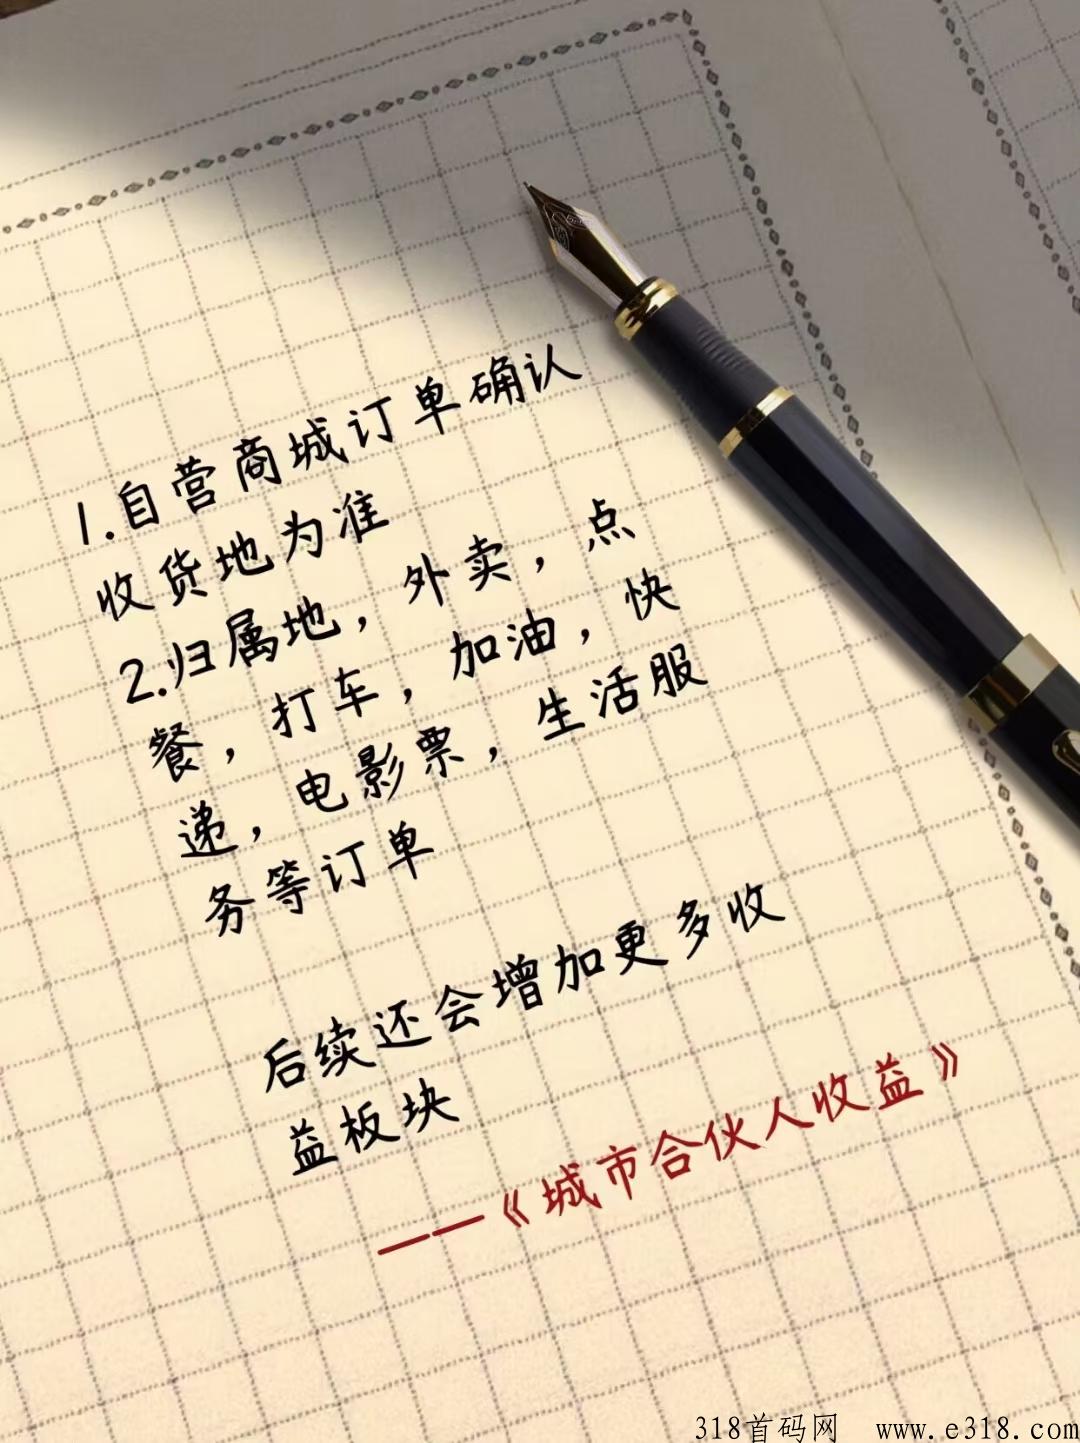 1.自营商城订单确认
收货地为准
2.归属地，外卖，点
餐，打车，加油，快
递，电影票，生活服
务等订单
后续还会增加更多收
益板块
——《城市合伙人收益》
318首码网 www.e318.com